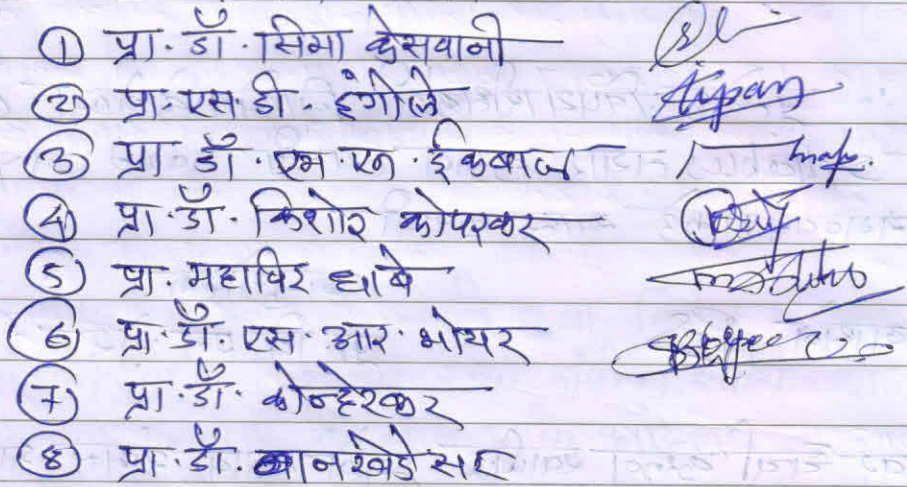 ① प्रा. डॉ. सिमा केसवानी
② प्रा. एस. डी. इंगोले
③ प्रा. डॉ. एम. एन. ईकबाल
④ प्रा. डॉ. किशोर कोपरकर
⑤ प्रा. महाविर धाबे
⑥ प्रा. डॉ. एस. आर. भोयर
⑦ प्रा. डॉ. कोन्हेरकर
⑧ प्रा. डॉ. वानखेडे सर